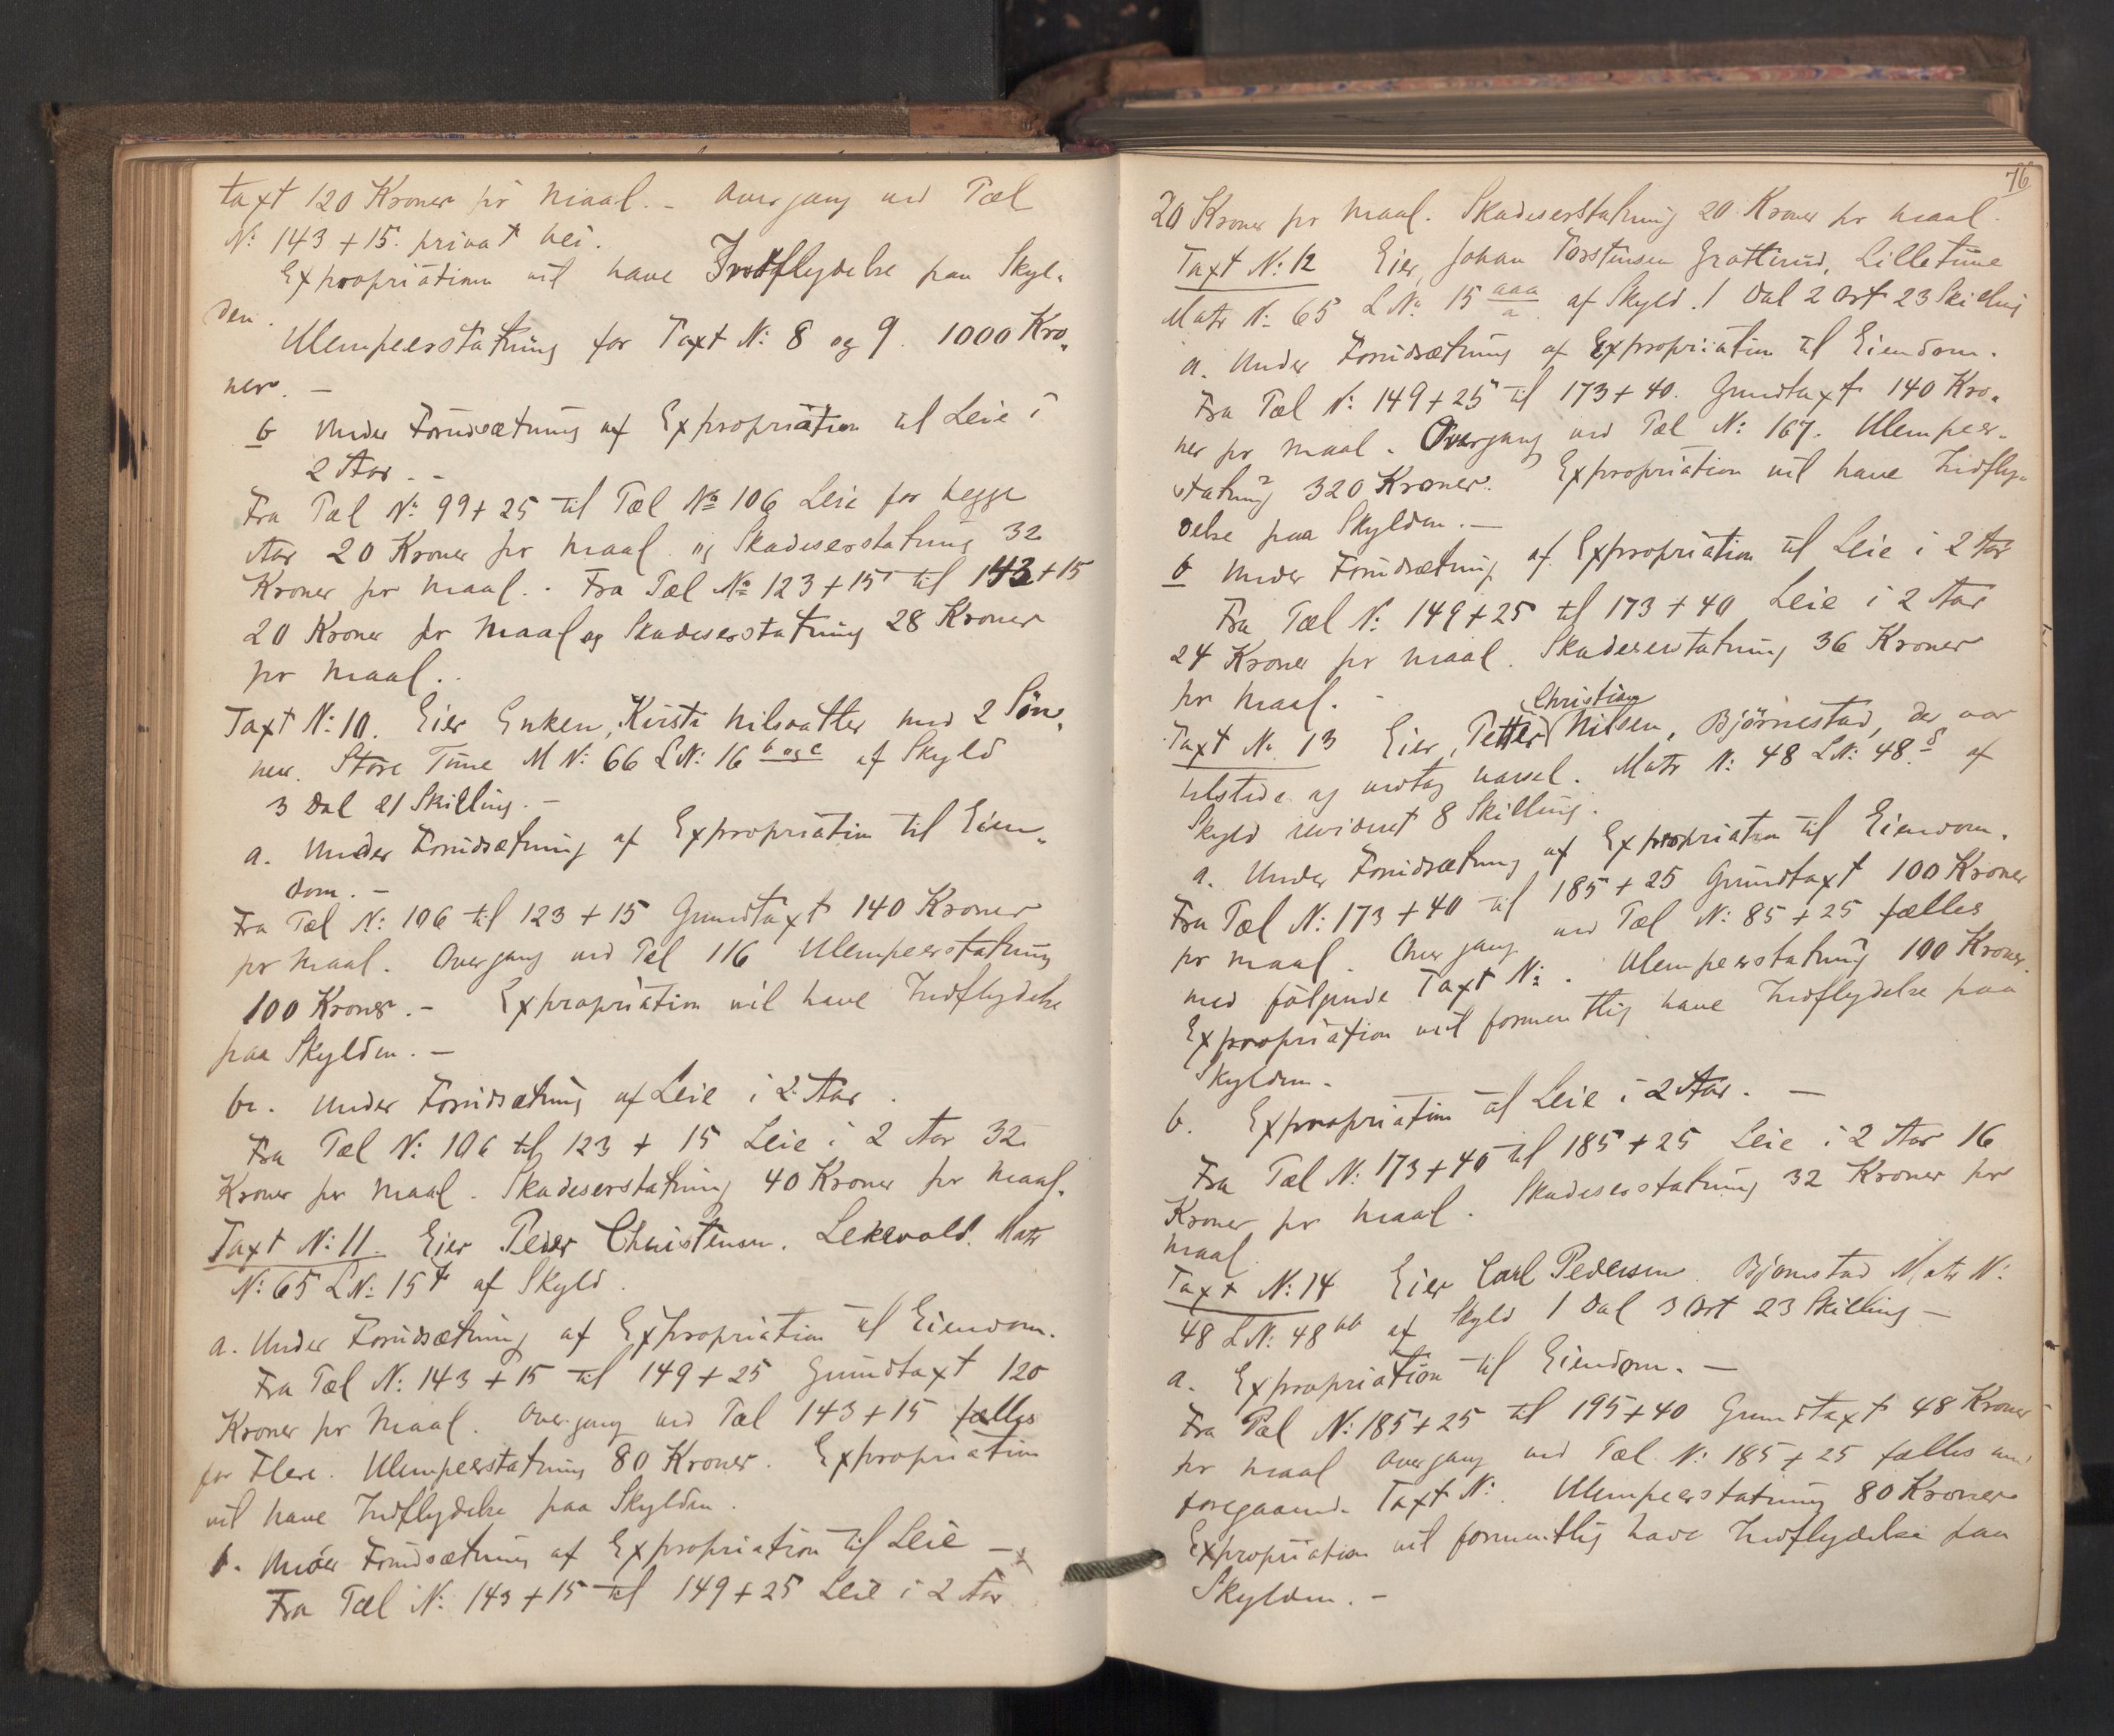 taxt 120 Kroner pr Maal. – Overgang ved Pæl
N: 143 + 15. privat Vei.
Expropriationen vil have Indflydelse paa Skyl-
den.
Ulempeerstatning for Taxt N: 8 og 9. 1000 Kro-
ner. –
b Under Forudsætning af Expropriation til Leie i
2 Aar. –
Fra Pæl N: 99 + 25 til Pæl No 106 Leie for begge
Aar 20 Kroner pr Maal og Skadeserstatning 32
Kroner pr Maal. . Fra Pæl No 123 + 15 til 143 + 15
20 Kroner pr Maal og Skadeserstatning 28 Kroner
pr Maal. .
Taxt N: 10. Eier Enken, Kirsti Nilsdatter med 2 Søn-
ner. Store Tune M N: 66 L N: 16 b og c af Skyld
3 Dal 21 Skilling. –
a. Under Forudsætning af Expropriation til Eien-
dom. –
Fra Pæl N: 106 til 123 + 15 Grundtaxt 140 Kroner
pr Maal. Overgang ved Pæl 116 Ulempeerstatning
100 Kroner. – Expropriation vil have Indflydelse
paa Skylden. –
b. Under Forudsætning af Leie i 2 Aar.
Fra Pæl N: 106 til 123 + 15 Leie i 2 Aar 32
Kroner pr Maal. Skadeserstatning 40 Kroner pr Maal.
Taxt N: 11. Eier Peder Christensen. Lekevold. Matr
N: 65 L N: 15 af Skyld.
a. Under Forudsætning af Expropriation til Eiendom.
Fra Pæl N: 143 + 15 til 149 + 25 Grundtaxt 120
Kroner pr Maal. Overgang ved Pæl 143 + 15 fælles
for Flere. Ulempeerstatning 80 Kroner. Expropriation
vil have Indflydelse paa Skylden.
b. Under Forudsætning af Expropriation til Leie –
Fra Pæl N: 143 + 15 til 149 + 25 Leie i 2 Aar
76
20 Kroner pr Maal. Skadeserstatning 20 Kroner pr Maal.
Taxt N: 12 Eier, Johan Torstensen Grøtterud, Lilletune
Matr N: 65 L N: 15 aaa a af Skyld. 1 Dal 2 Ort 23 Skilling
a. Under Forudsætning af Expropriation til Eiendom.
Fra Pæl N: 149 + 25 til 173 + 40. Grundtaxt 140 Kro-
ner pr Maal. Overgang ved Pæl N: 167. Ulempeer-
statning 320 Kroner. Expropriation vil have Indfly-
delse paa Skylden. –
b Under Forudsætning af Expropriation til Leie i 2 Aar
Fra Pæl N: 149 + 25 til 173 + 40 Leie i 2 Aar
24 Kroner pr Maal. Skadeserstatning 36 Kroner
pr Maal. –
Christian
Taxt N: 13 Eier, Petter Nilsen, Bjørnestad, der var
tilstede og vedtog Varsel. Matr N: 48 L N: 48 af
Skyld revideret 8 Skilling.
a. Under Forudsætning af Expropriation til Eiendom.
Fra Pæl N: 173 + 40 til 185 + 25 Grundtaxt 100 Kroner
pr Maal. Overgang ved Pæl N: 85 + 25 fælles
med følgende Taxt N: . Ulempeerstatning 100 Kroner.
Expropriation vil formentlig have Indflydelse paa
Skylden –
b. Expropriation til Leie i 2 Aar. –
Fra Pæl N: 173 + 40 til 185 + 25 Leie i 2 Aar 16
Kroner pr Maal. Skadeserstatning 32 Kroner pr
Maal
Taxt N: 14 Eier Carl Pedersen Bjørnestad Matr N:
48 L N: 48 af Skyld 1 Dal 3 Ort 23 Skilling –
a. Expropriation til Eiendom. –
Fra Pæl N: 185 + 25 til 195 + 40 Grundtaxt 48 Kroner
pr Maal Overgang ved Pæl N: 185 + 25 fælles med
foregaaende Taxt N: . Ulempeerstatning 80 Kroner
Expropriation vil formentlig have Indflydelse paa
Skylden. –